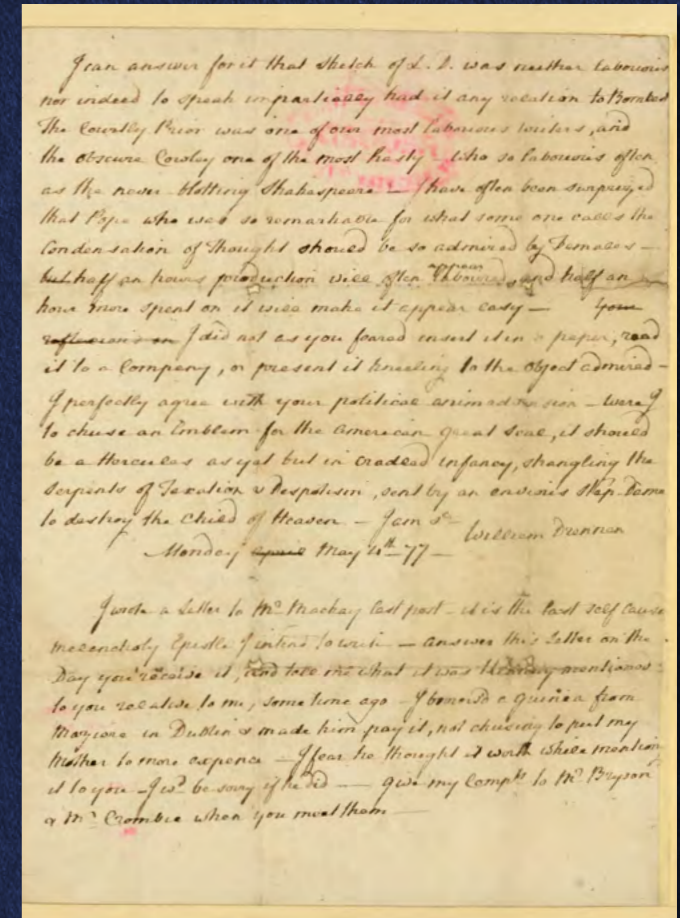 I can answer for it that sketch of L. D. was neither labourious
nor indeed to speak impartially had it any relation to Bombast
The Courtly Prior was one of our most labourious writers, and
the obscure Cowley one of the most hasty – who so labourious often
as the never-blotting Shakespeare – I have often been surprized
that Pope who was so remarkable for what some one calls the
Condensation of Thought should be so admired by Females –
but half an hours production will often appear laboured, and half an
hour more spent on it will make it appear easy – Your
reflexions on I did not as you feared insert it in a paper, read
it to a Company, or present it kneeling to the object admired –
I perfectly agree with your political animadversion – were I
to chuse an Emblem for the American great Seal, it should
be a Hercules as yet but in Cradled infancy, strangling the
Serpents of Taxation & Despotism, sent by an envious Step-Dame
to destroy the Child of Heaven – I am &c
William Drennan
Monday April May 4th 77 –
I wrote a Letter to Mr Mackay last post – it is the last self cause
melancholy Epistle I intend to write – answer this Letter on the
Day you receive it, and tell me what it was mentioned
to you relative to me, some time ago – I borrowed a guinea from
in Dublin & made him pay it, not chusing to put my
Mother to more expence – I fear he thought it worth while mention
it to you – I wd be sorry if he did – give my Complts to Mr Bryson
& Mr Crombie when you meet them –